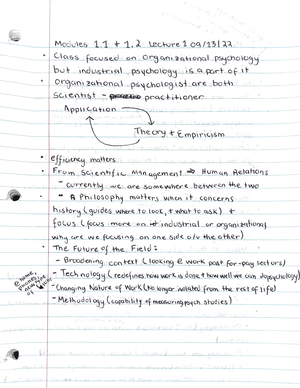 Modules 1.1 + 1.2 Lecture 1 09/13/22
• Class focused on organizational psychology
but industrial psychology is a part of it
• organizational psychologist are both
scientist - practitioner
Application
Theory + Empiricism
• efficiency matters
• From Scientific Management ⇒ Human Relations
- currently we are somewhere between the two
- A Philosophy matters when it concerns
history (guides where to look, + what to ask) +
focus (focus more on industrial or organizational
why are we focusing on one side o/w the other)
• The Future of the Field:
- Broadening context (looking @ work past for-pay sectors)
- Technology (redefines how work is done + how well we can do psychology)
- Changing Nature of Work (no longer isolated from the rest of life)
- Methodology (capability of measuring psych studies)
@ home,